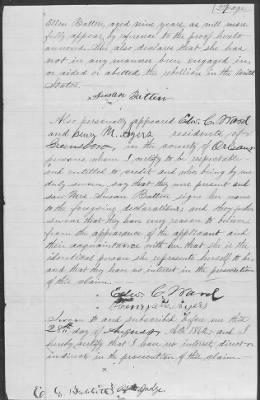 2d page
Ellen Batten, aged nine years as will more
fully appear by reference to the proof hereto
annexed. She also declares that she has
not in any manner been engaged in,
or aided or abetted the rebellion in the United
States.
Susan Batten
Also personally appeared Edw. C. Ward
and Henry M. Ayers residents of
Greensboro, in the county of Orleans
persons whom I certify to be respectable
and entitled to credit and who being by me
duly sworn, say that they were present and
saw Mrs Susan Batten sign her name
to the foregoing declaration; and they further
swear that they have every reason to believe
from the appearance of the applicant and
their acquaintance with her that she is the
identical person she represents herself to be
and that they have no interest in the prosecution
of this claim.
Edw C Ward
Henry M. Ayers
Sworn to and subscribed before me this
28th day of August A.D. 1862; and I
hereby certify that I have no interest, direct or
indirect in the prosecution of this claim.
E. G. Judge